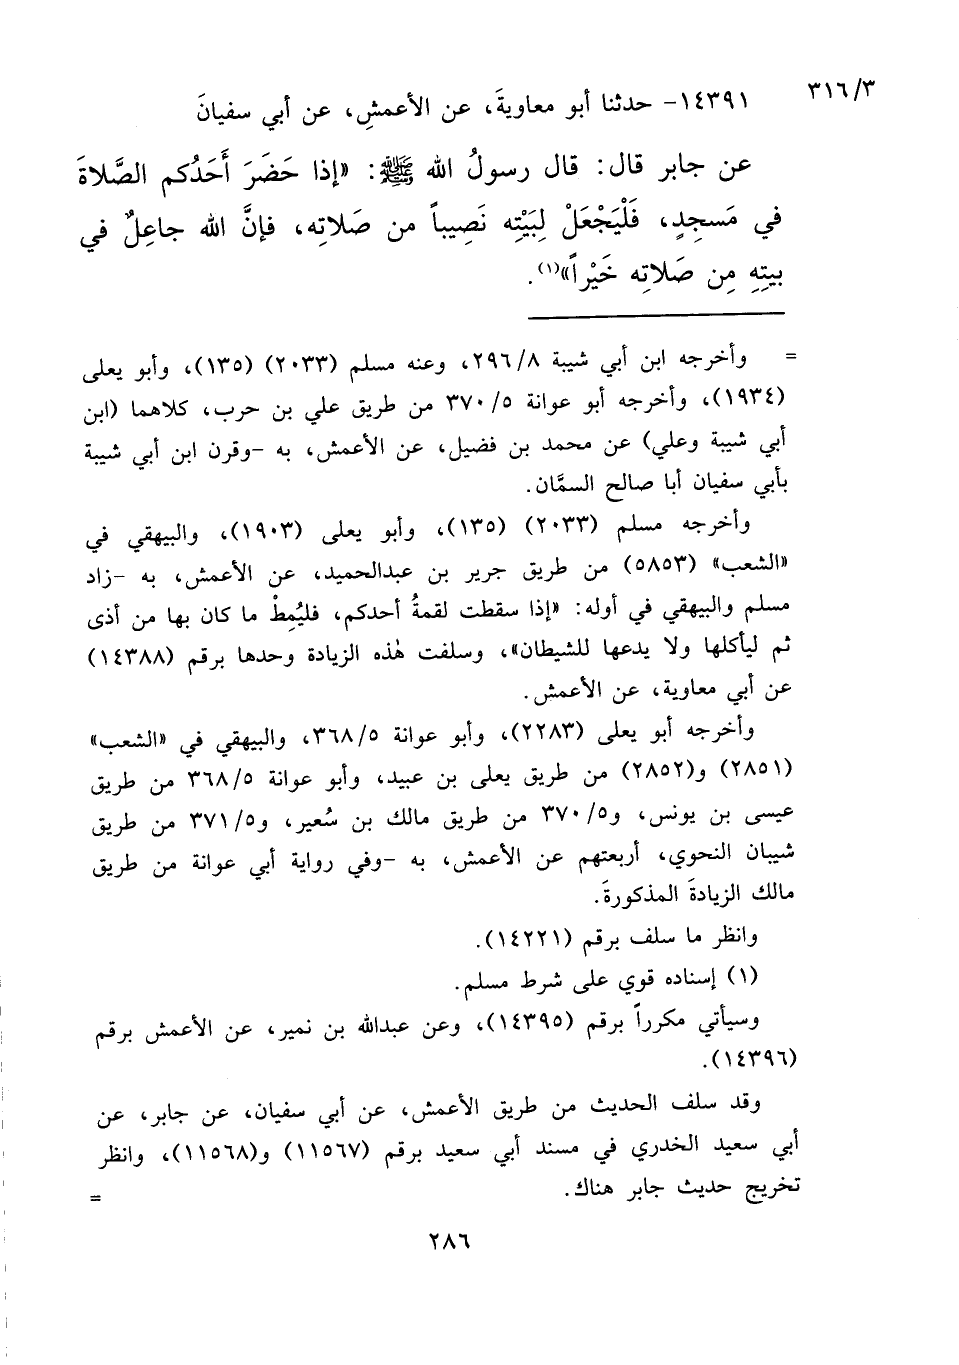 ٣١٦/٣
١٤٣٩١- حدثنا أبو معاويةَ، عن الأعمشِ، عن أبي سفيانَ
عن جابر قال: قال رسولُ الله ﷺ: «إذا حَضَرَ أَحَدُكم الصَّلاةَ
في مَسجِدٍ، فَلْيَجْعَلْ لِبَيْتِه نَصِيباً من صَلاتِه، فإنَّ الله جاعِلٌ في
بيتِهِ مِن صَلاتِه خَيْراً»(١).
= وأخرجه ابن أبي شيبة ٢٩٦/٨، وعنه مسلم (٢٠٣٣) (١٣٥)، وأبو يعلى
(١٩٣٤)، وأخرجه أبو عوانة ٣٧٠/٥ من طريق علي بن حرب، كلاهما (ابن
أبي شيبة وعلي) عن محمد بن فضيل، عن الأعمش، به -وقرن ابن أبي شيبة
بأبي سفيان أبا صالح السمَّان.
وأخرجه مسلم (٢٠٣٣) (١٣٥)، وأبو يعلى (١٩٠٣)، والبيهقي في
«الشعب» (٥٨٥٣) من طريق جرير بن عبدالحميد، عن الأعمش، به -زاد
مسلم والبيهقي في أوله: «إذا سقطت لقمةُ أحدكم، فليُمِطْ ما كان بها من أذى
ثم ليأكلها ولا يدعها للشيطان»، وسلفت هٰذه الزيادة وحدها برقم (١٤٣٨٨)
عن أبي معاوية، عن الأعمش.
وأخرجه أبو يعلى (٢٢٨٣)، وأبو عوانة ٣٦٨/٥، والبيهقي في «الشعب»
(٢٨٥١) و(٢٨٥٢) من طريق يعلى بن عبيد، وأبو عوانة ٣٦٨/٥ من طريق
عيسى بن يونس، و٣٧٠/٥ من طريق مالك بن سُعير، و٣٧١/٥ من طريق
شيبان النحوي، أربعتهم عن الأعمش، به -وفي رواية أبي عوانة من طريق
مالك الزيادةَ المذكورةَ.
وانظر ما سلف برقم (١٤٢٢١).
(١) إسناده قوي على شرط مسلم.
وسيأتي مكرراً برقم (١٤٣٩٥)، وعن عبدالله بن نمير، عن الأعمش برقم
(١٤٣٩٦).
وقد سلف الحديث من طريق الأعمش، عن أبي سفيان، عن جابر، عن
أبي سعيد الخدري في مسند أبي سعيد برقم (١١٥٦٧) و(١١٥٦٨)، وانظر
تخريج حديث جابر هناك. =
٢٨٦